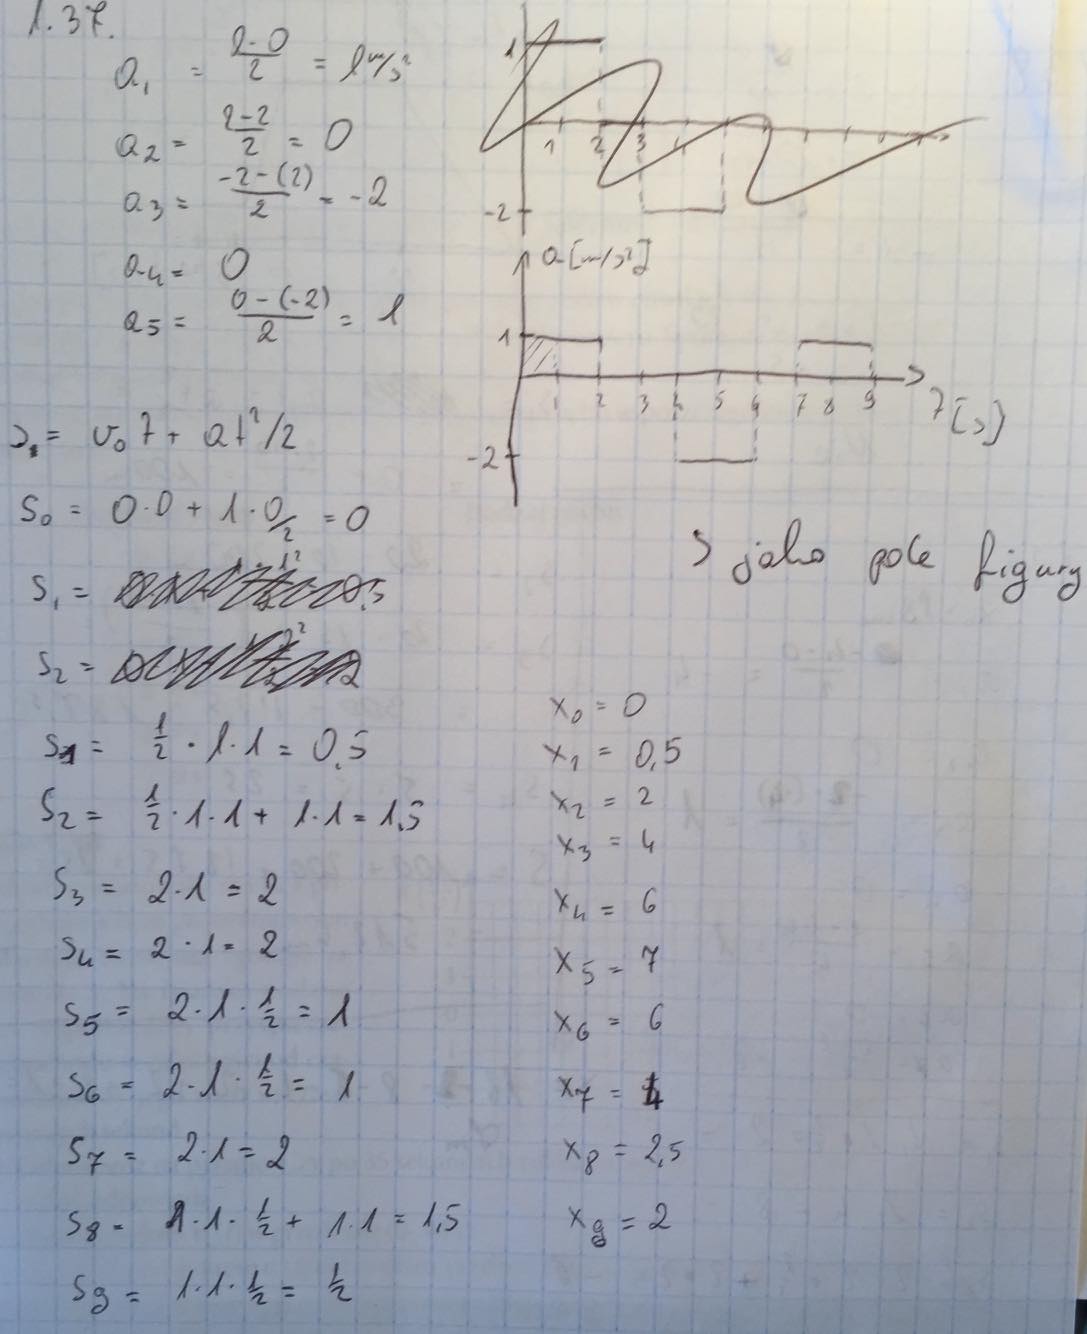 1.37.
a₁ = (2-0)/2 = 1 m/s²
a₂ = (2-2)/2 = 0
a₃ = (-2-(2))/2 = -2
a₄ = 0
a₅ = (0-(-2))/2 = 1
1
1 2 3 4
-2
a [m/s²]
1
1 2 3 4 5 6 7 8 9
t [s]
-2
s = v₀t + at²/2
S₀ = 0·0 + 1·0/2 = 0
s jako pole figury
S₁ =
S₂ =
S₁ = 1/2 · 1·1 = 0,5
S₂ = 1/2 ·1·1 + 1·1 = 1,5
S₃ = 2·1 = 2
S₄ = 2·1 = 2
S₅ = 2·1·1/2 = 1
S₆ = 2·1·1/2 = 1
S₇ = 2·1 = 2
S₈ = 1·1·1/2 + 1·1 = 1,5
S₉ = 1·1·1/2 = 1/2
x₀ = 0
x₁ = 0,5
x₂ = 2
x₃ = 4
x₄ = 6
x₅ = 7
x₆ = 6
x₇ = 4
x₈ = 2,5
x₉ = 2